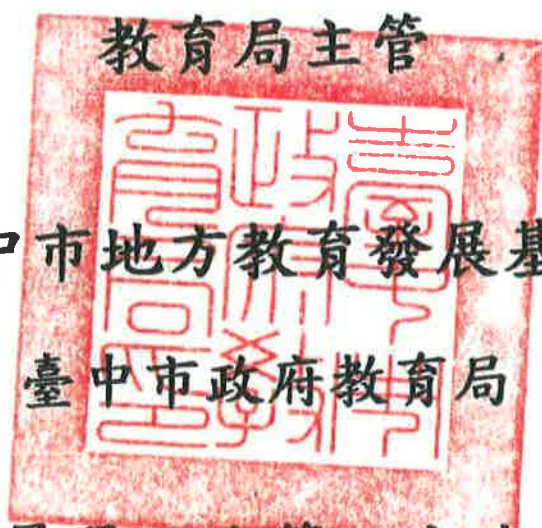 教育局主管
中市地方教育發展基
臺中市政府教育局